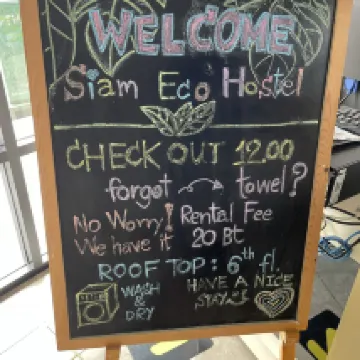 WELCOME
Siam Eco Hostel
CHECK OUT 12.00
forgot → towel?
No Worry! Rental Fee
We have it 20 Bt
ROOF TOP : 6th fl.
WASH & DRY
HAVE A NICE STAY